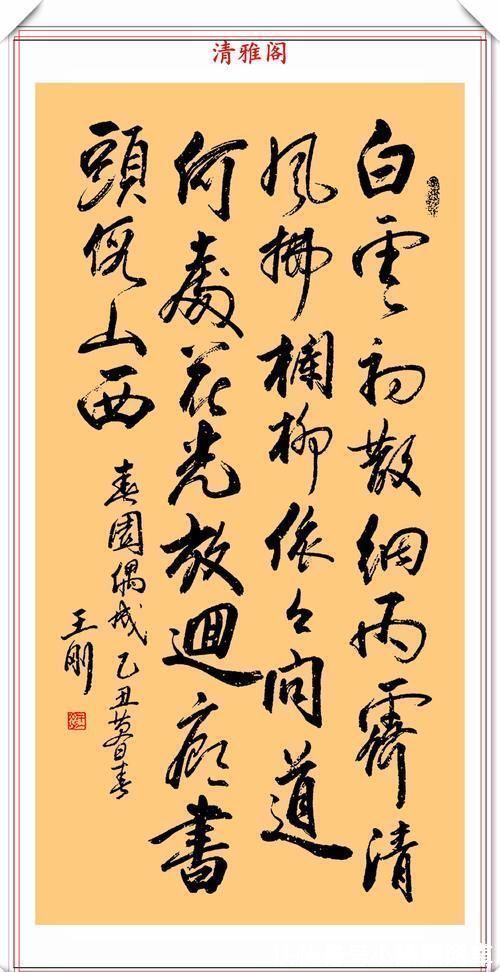 清雅阁
白雲初散細雨霽清
風拂欄柳依々問道
何處花光放迴廊盡
頭假山西
春園偶成 乙丑暮春
王剛